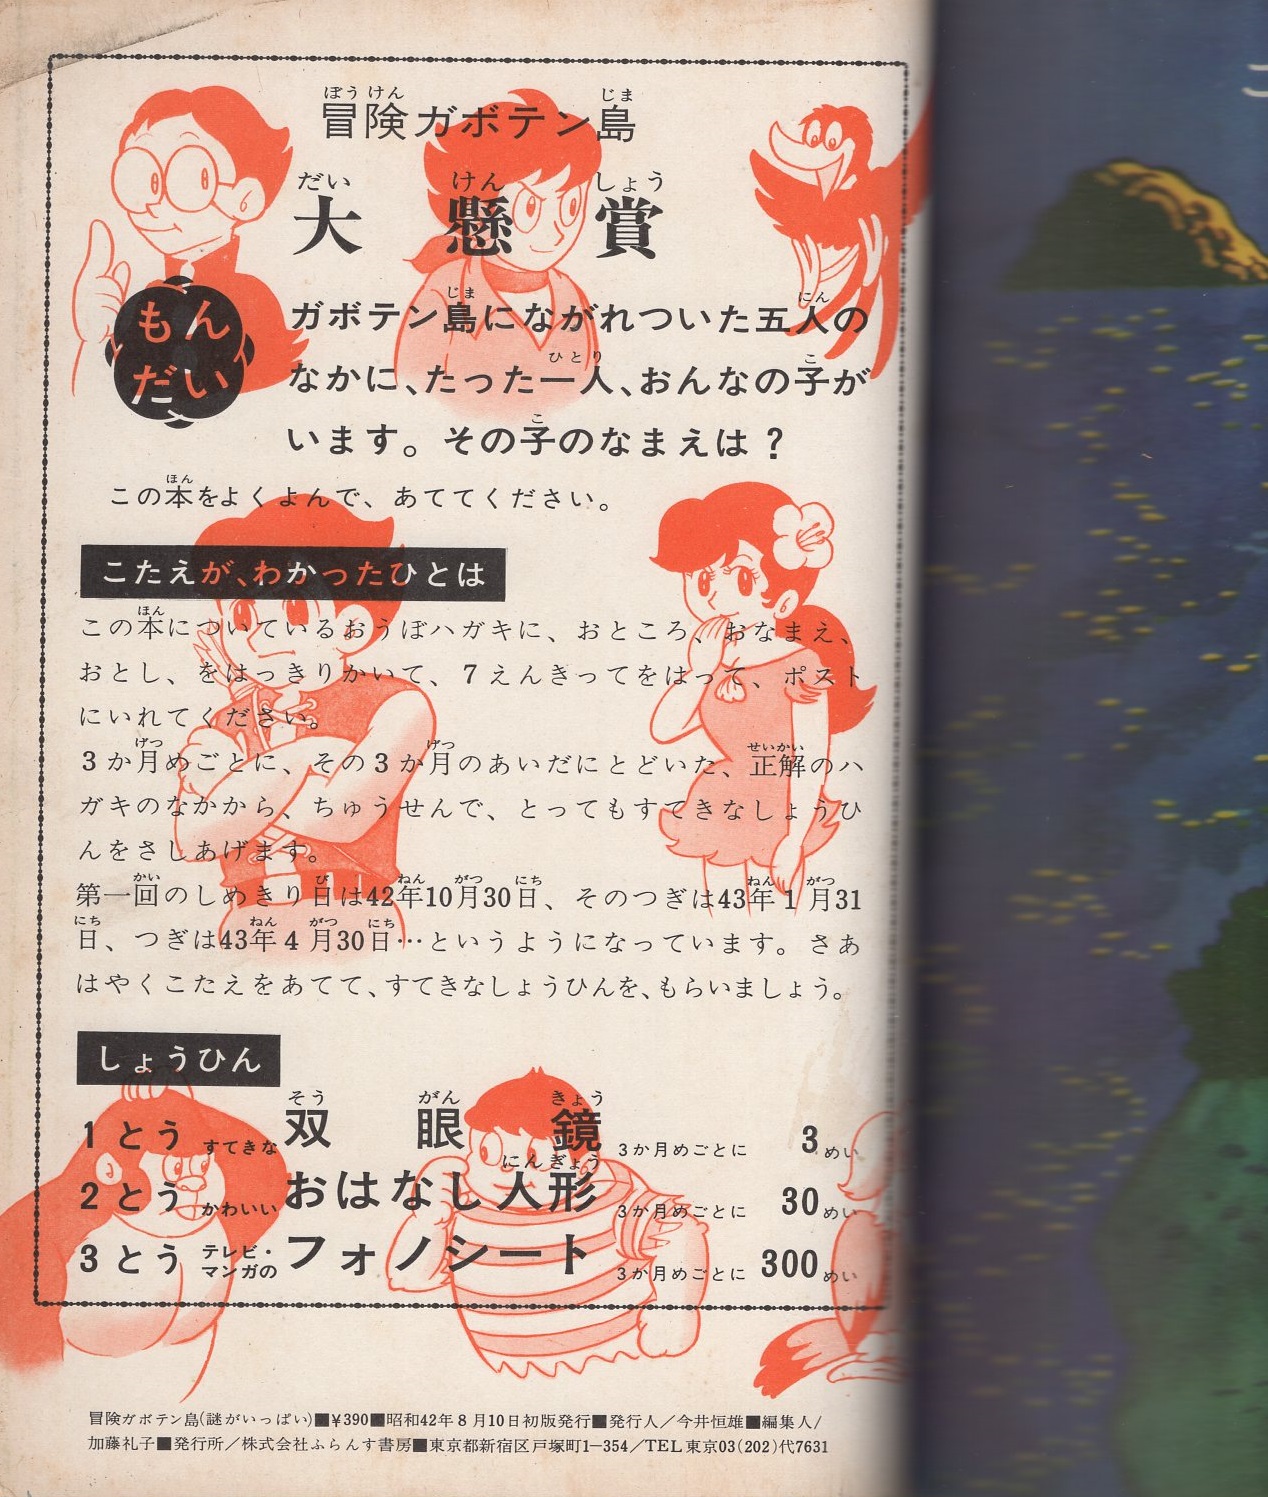 冒険ガボテン島
大懸賞
もんだい
ガボテン島にながれついた五人の
なかに、たった一人、おんなの子が
います。その子のなまえは？
この本をよくよんで、あててください。
こたえが、わかったひとは
この本についているおうぼハガキに、おところ、おなまえ、
おとし、をはっきりかいて、7えんきってをはって、ポスト
にいれてください。
3か月めごとに、その3か月のあいだにとどいた、正解のハ
ガキのなかから、ちゅうせんで、とってもすてきなしょうひ
んをさしあげます。
第一回のしめきり日は42年10月30日、そのつぎは43年1月31
日、つぎは43年4月30日…というようになっています。さあ
はやくこたえをあてて、すてきなしょうひんを、もらいましょう。
しょうひん
1とう すてきな双眼鏡 3か月めごとに 3めい
2とう かわいいおはなし人形 3か月めごとに 30めい
3とう テレビ・マンガのフォノシート 3か月めごとに 300めい
冒険ガボテン島(謎がいっぱい)■¥390■昭和42年8月10日初版発行■発行人／今井恒雄■編集人/
加藤礼子■発行所／株式会社ふらんす書房■東京都新宿区戸塚町1-354／TEL東京03(202)代7631